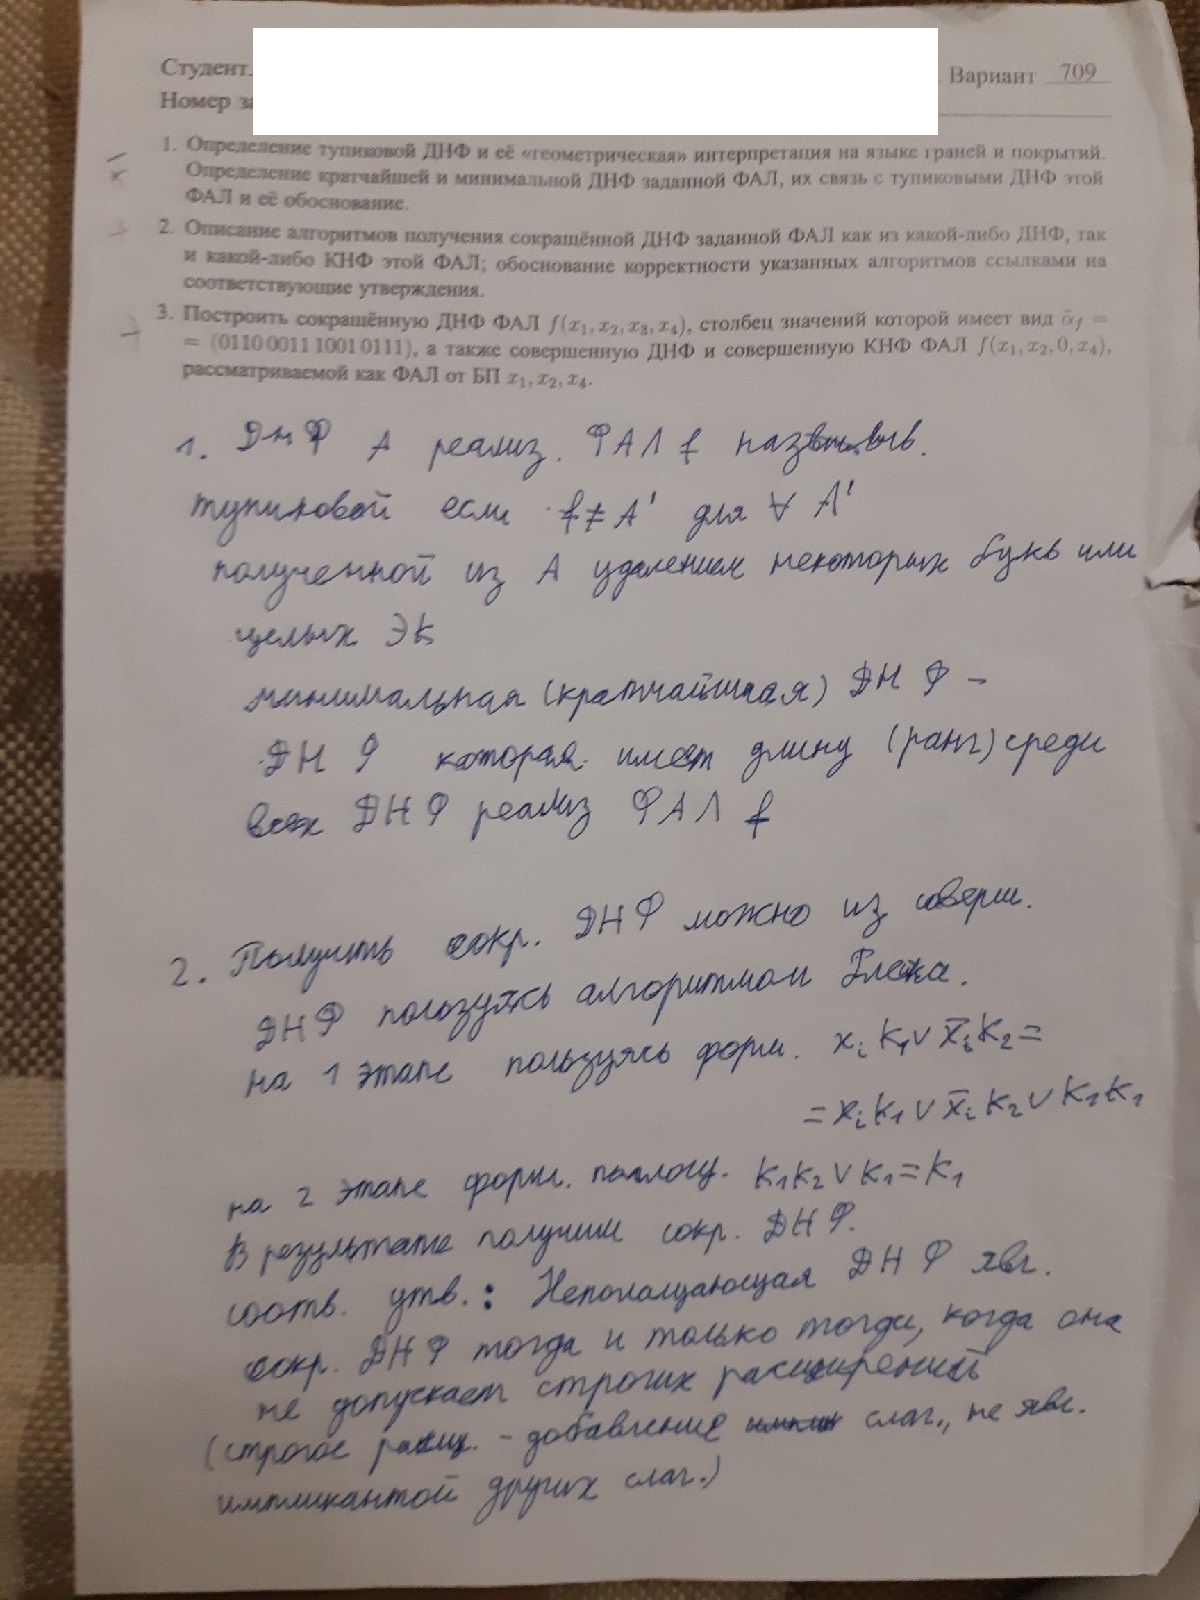 Студент. Вариант 709
Номер за
1. Определение тупиковой ДНФ и её «геометрическая» интерпретация на языке граней и покрытий.
Определение кратчайшей и минимальной ДНФ заданной ФАЛ, их связь с тупиковыми ДНФ этой
ФАЛ и её обоснование.
2. Описание алгоритмов получения сокращённой ДНФ заданной ФАЛ как из какой-либо ДНФ, так
и какой-либо КНФ этой ФАЛ; обоснование корректности указанных алгоритмов ссылками на
соответствующие утверждения.
3. Построить сокращённую ДНФ ФАЛ f(x₁, x₂, x₃, x₄), столбец значений которой имеет вид α̃_f =
= (0110 0011 1001 0111), а также совершенную ДНФ и совершенную КНФ ФАЛ f(x₁, x₂, 0, x₄),
рассматриваемой как ФАЛ от БП x₁, x₂, x₄.
1. ДНФ A реализ. ФАЛ f
тупиковой если f ≠ A' для ∀ A'
полученной из A удалением некоторых букв или
целых ЭК
минимальная (кратчайшая) ДНФ –
ДНФ которая имеет длину (ранг) среди
всех ДНФ реализ ФАЛ f
2. Получить сокр. ДНФ можно из соверш.
ДНФ пользуясь алгоритмом Блейка.
на 1 этапе пользуясь форм. x_i K₁ ∨ x̄_i K₂ =
= x_i K₁ ∨ x̄_i K₂ ∨ K₁ K₁
на 2 этапе форм. поглощ. K₁K₂ ∨ K₁ = K₁
В результате получим сокр. ДНФ.
соотв. утв.: Непоглощающая ДНФ явл.
сокр. ДНФ тогда и только тогда, когда она
не допускает строгих расширений
(строгое расш. – добавление слаг., не явл.
импликантой других слаг.)